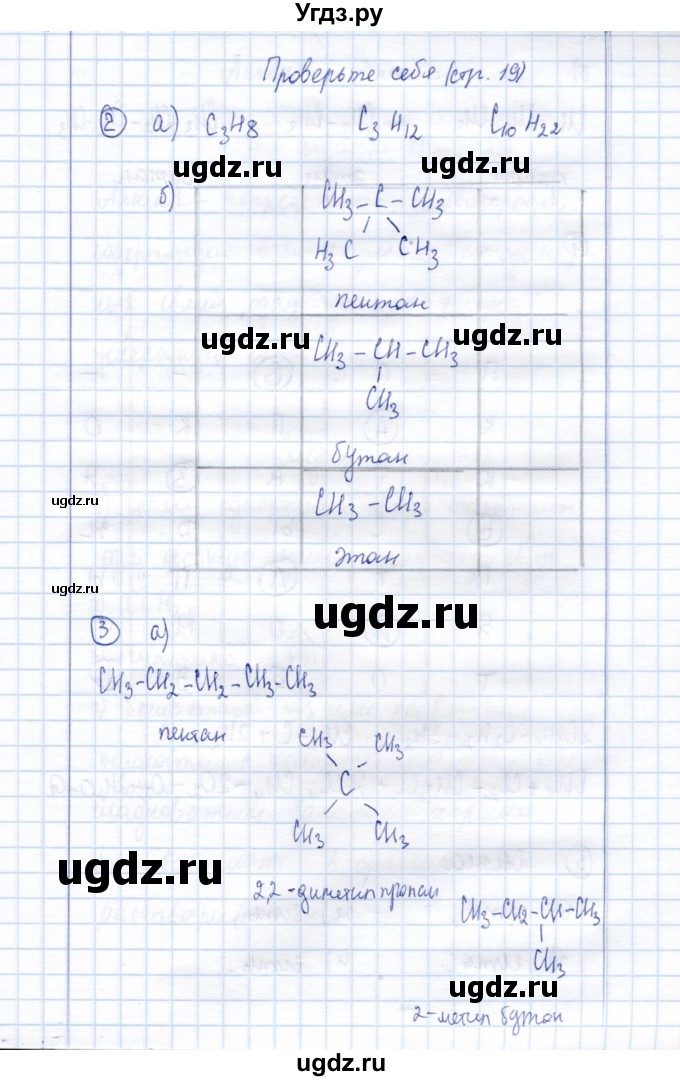 Угдз.ру
Проверьте себя (стр. 19)
2 а) C3H8 C3H12 C10H22
ugdz.ru ugdz.ru
б) CH3 – C – CH3
H3C CH3
пентан
ugdz.ru ugdz.ru
CH3 – CH – CH3
CH3
бутан
ugdz.ru
CH3 – CH3
этан
ugdz.ru
ugdz.ru
3 а)
CH3 – CH2 – CH2 – CH3 – CH3
пентан
CH3 CH3
C
CH3 CH3
ugdz.ru
2,2 - диметил пропан
CH3 – CH2 – CH – CH3
CH3
ugdz.ru
2-метил бутан
ugdz.ru